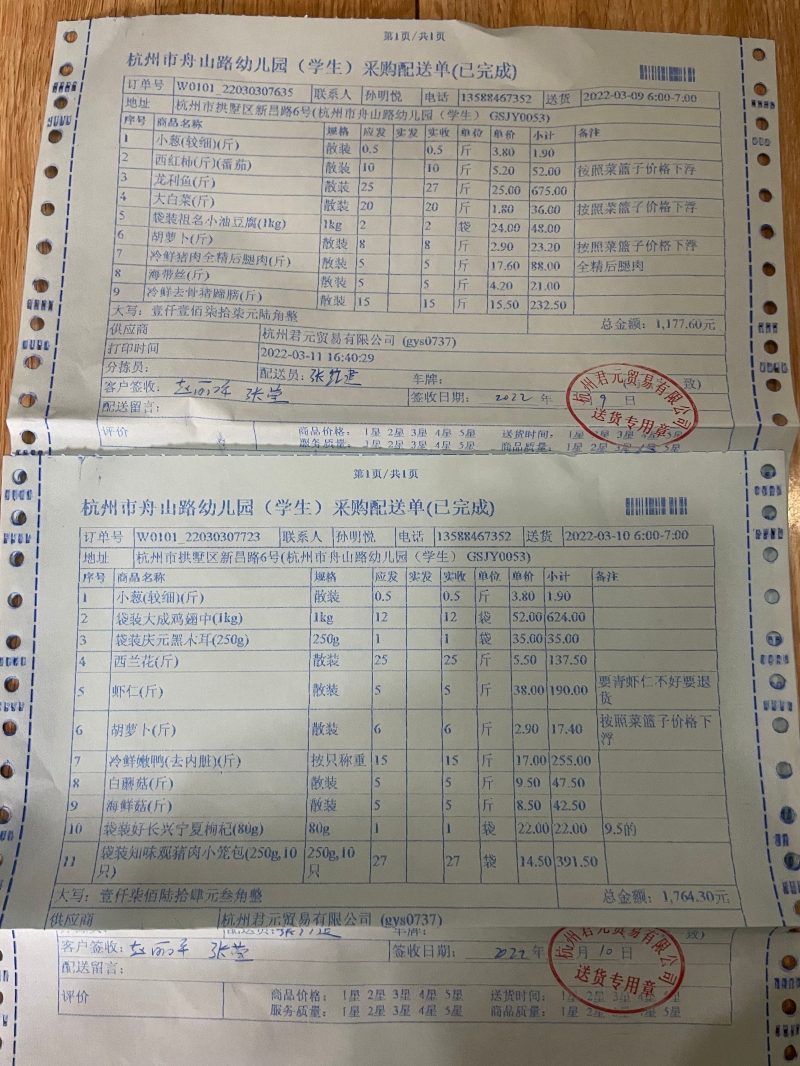 第1页/共1页
杭州市舟山路幼儿园（学生）采购配送单(已完成)
订单号 W0101_22030307635 联系人 孙明悦 电话 13588467352 送货 2022-03-09 6:00-7:00
地址 杭州市拱墅区新昌路6号(杭州市舟山路幼儿园（学生） GSJY0053)
序号 商品名称 规格 应发 实发 实收 单位 单价 小计 备注
1 小葱(较细)(斤) 散装 0.5 0.5 斤 3.80 1.90
2 西红柿(斤)(番茄) 散装 10 10 斤 5.20 52.00 按照菜篮子价格下浮
3 龙利鱼(斤) 散装 25 27 斤 25.00 675.00
4 大白菜(斤) 散装 20 20 斤 1.80 36.00 按照菜篮子价格下浮
5 袋装祖名小油豆腐(1kg) 1kg 2 2 袋 24.00 48.00
6 胡萝卜(斤) 散装 8 8 斤 2.90 23.20 按照菜篮子价格下浮
7 冷鲜猪肉全精后腿肉(斤) 散装 5 5 斤 17.60 88.00 全精后腿肉
8 海带丝(斤) 散装 5 5 斤 4.20 21.00
9 冷鲜去骨猪蹄膀(斤) 散装 15 15 斤 15.50 232.50
大写：壹仟壹佰柒拾柒元陆角整 总金额：1,177.60元
供应商 杭州君元贸易有限公司 (gys0737)
打印时间 2022-03-11 16:40:29
分拣员： 配送员： 车牌：
客户签收： 张莹 签收日期： 2022 年 9 日 致)
配送留言：
杭州君元贸易有限公司
送货专用章
评价 商品价格： 1星 2星 3星 4星 5星 送货时间： 1星 2星 3星 4星 5星
服务质量： 1星 2星 3星 4星 5星 商品质量： 1星 2星 3星 4星 5星
第1页/共1页
杭州市舟山路幼儿园（学生）采购配送单(已完成)
订单号 W0101_22030307723 联系人 孙明悦 电话 13588467352 送货 2022-03-10 6:00-7:00
地址 杭州市拱墅区新昌路6号(杭州市舟山路幼儿园（学生） GSJY0053)
序号 商品名称 规格 应发 实发 实收 单位 单价 小计 备注
1 小葱(较细)(斤) 散装 0.5 0.5 斤 3.80 1.90
2 袋装大成鸡翅中(1kg) 1kg 12 12 袋 52.00 624.00
3 袋装庆元黑木耳(250g) 250g 1 1 袋 35.00 35.00
4 西兰花(斤) 散装 25 25 斤 5.50 137.50
5 虾仁(斤) 散装 5 5 斤 38.00 190.00 要青虾仁不好要退
货
6 胡萝卜(斤) 散装 6 6 斤 2.90 17.40 按照菜篮子价格下
浮
7 冷鲜嫩鸭(去内脏)(斤) 按只称重 15 15 斤 17.00 255.00
8 白蘑菇(斤) 散装 5 5 斤 9.50 47.50
9 海鲜菇(斤) 散装 5 5 斤 8.50 42.50
10 袋装好长兴宁夏枸杞(80g) 80g 1 1 袋 22.00 22.00 9.5的
11 袋装知味观猪肉小笼包(250g,10 250g,10 27 27 袋 14.50 391.50
只) 只
大写：壹仟柒佰陆拾肆元叁角整 总金额：1,764.30元
供应商 杭州君元贸易有限公司 (gys0737)
客户签收： 张莹 签收日期： 2022 年 月 10 日 致)
配送留言：
杭州君元贸易有限公司
送货专用章
评价 商品价格： 1星 2星 3星 4星 5星 送货时间： 1星 2星 3星 4星 5星
服务质量： 1星 2星 3星 4星 5星 商品质量： 1星 2星 3星 4星 5星